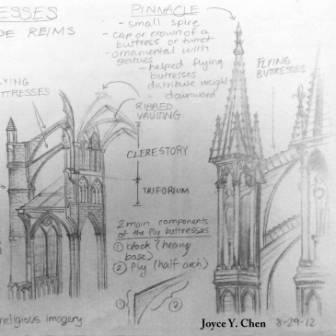 ESSES
DE REIMS
YING
TTRESSES
PINNACLE
- small spire
- cap or crown of a
buttress or turret
- ornamental with
statues
- helped flying
buttresses
distribute weight
downward
RIBBED
VAULTING
CLERESTORY
TRIFORIUM
FLYING
BUTTRESSES
2 main components
of the fly buttresses
① block (heavy
base)
② fly (half arch)
①
②
religious imagery
Joyce Y. Chen
8-29-12